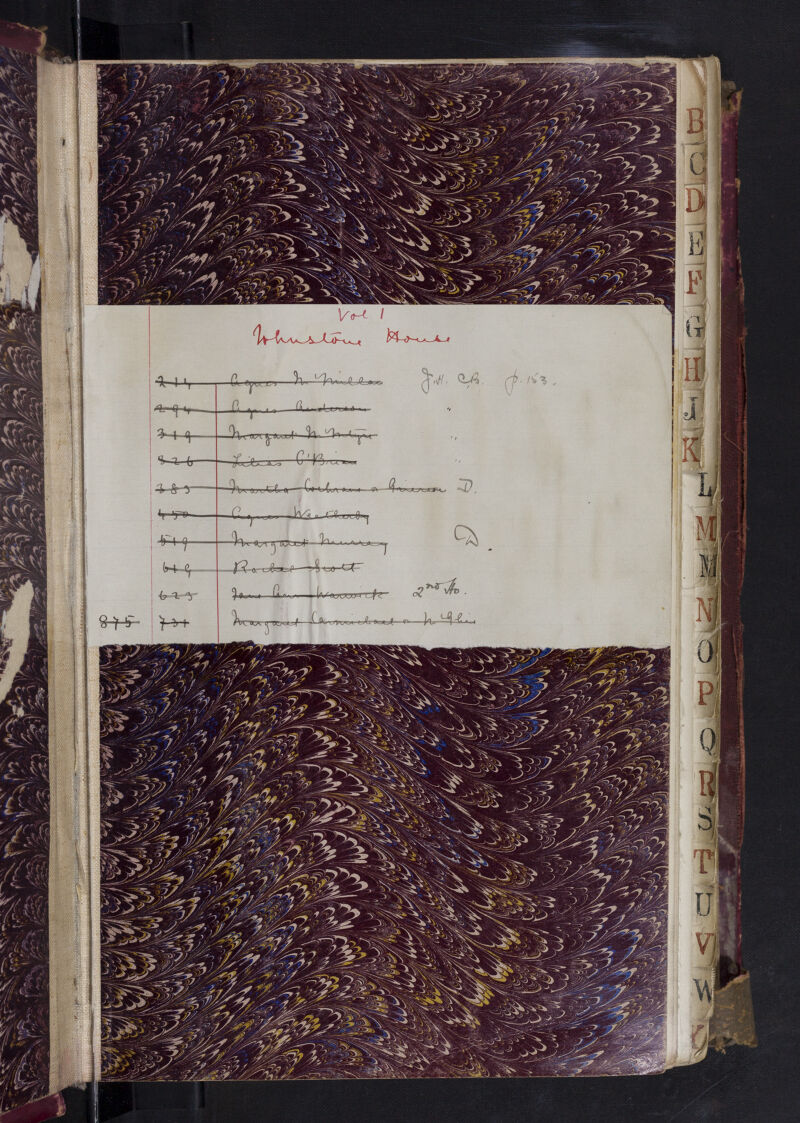 Vol 1
Johnstone House
214 Agnes McMillan J.H. C.B. p. 153.
294 Agnes Anderson "
319 Margaret McIntyre "
326 Lilias O'Brien "
383 Martha Cochrane or D.
450 Agnes Weatherby
519 Margaret Murray D.
619 Rachel Scott
623 Jane Ann Warwick 2nd Ho.
875 731 Margaret Carmichael or McGhie
B
C
D
E
F
G
H
J
K
L
M
M
N
O
P
Q
R
S
T
U
V
W
Y